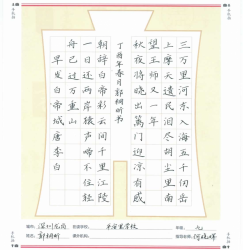 三万里河东入海五千仞岳
上摩天遗民泪尽胡尘里南
望王师又一年
秋夜将晓出篱门迎凉有感
丁酉年春月郭桐昕书
朝辞白帝彩云间千里江陵
一日还两岸猿声啼不住轻
舟已过万重山
早发白帝城唐李白
深圳龙岗 平安里学校 年级：九
姓名：郭桐昕 何晓辉